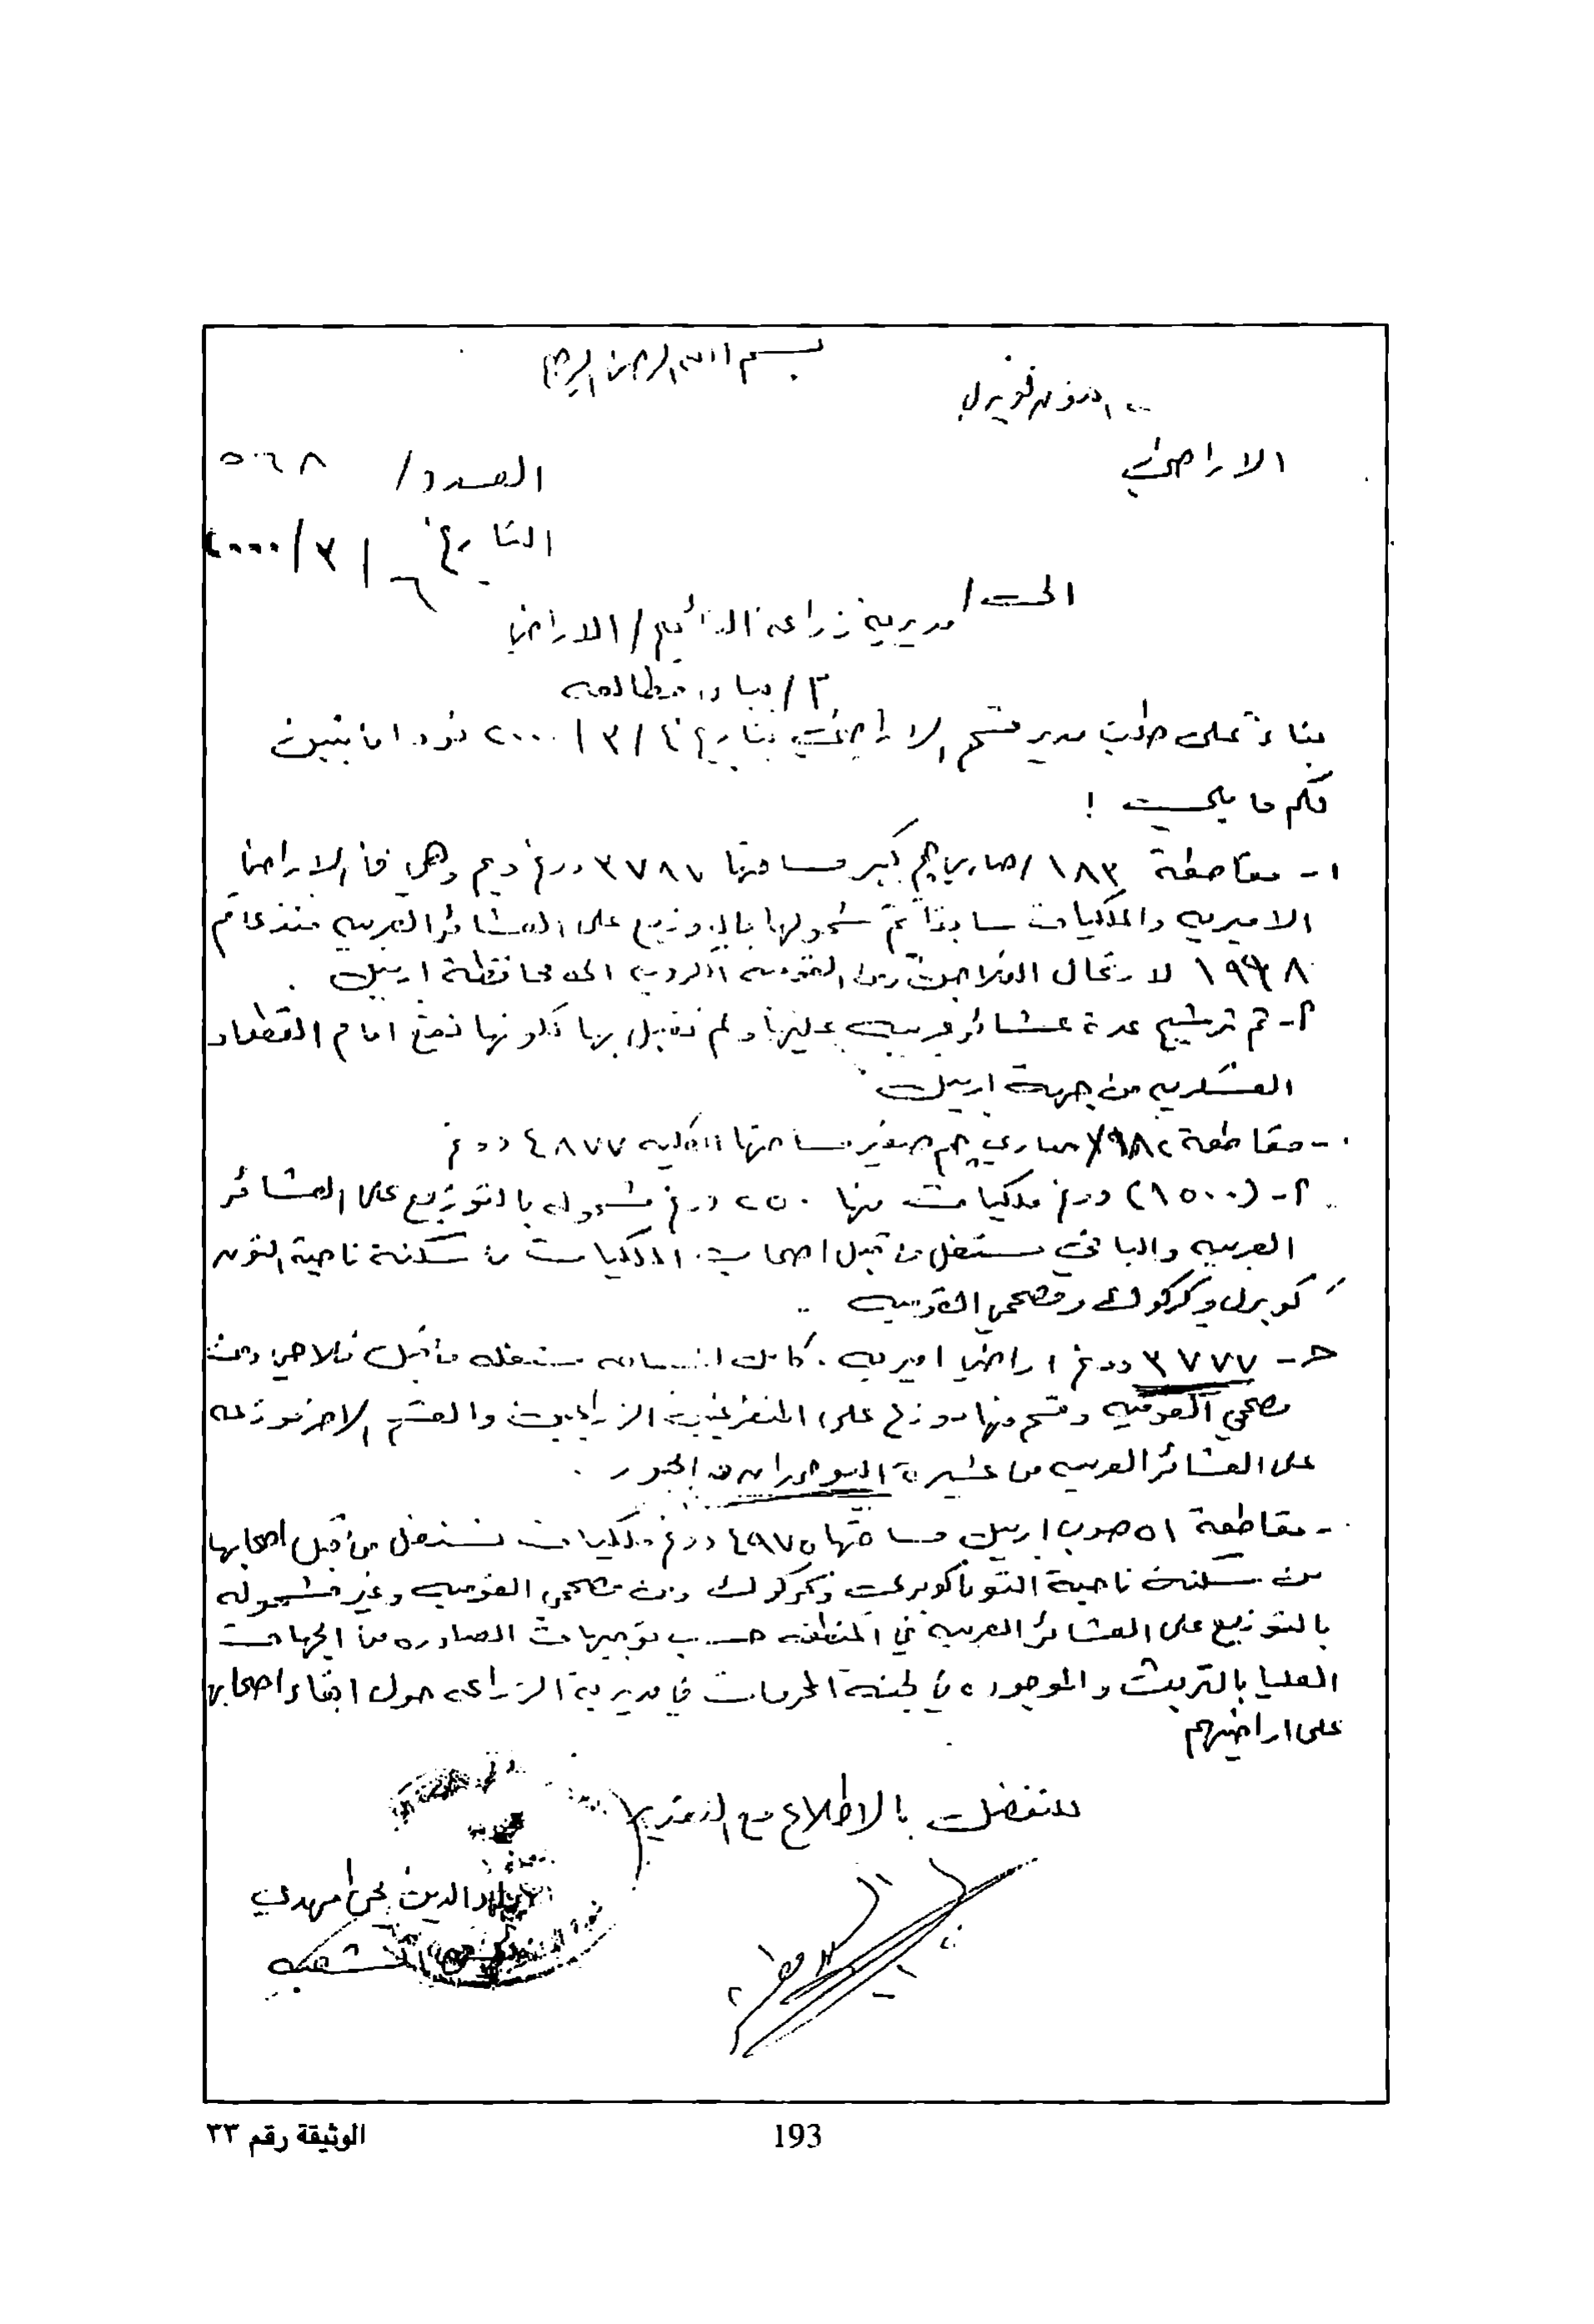 بسم الله الرحمن الرحيم
التون كوبري
الاراضي
العدد / ٥٠٦٨
التاريخ ٦ / ٣ / ٢٠٠٠
الى / مديرية زراعة / الاراضي
م / بيان مطالعه
بناءً على طلب مدير قسم الاراضي بتاريخ ٤ / ٣ / ٢٠٠٠ نود ان نبين
لكم ما يلي :
١- مقاطعة ١٨٣ / صاري جم كبير مساحتها ٣٧٨٧ دونم وهي من الاراضي
الاميريه والملكيات سابقاً تم شمولها بالتوزيع على العشائر العربيه منذ عام
١٩٩٨ لارتحال الفلاحين من القوميه الكرديه الى محافظة اربيل .
أ- تم ترشيح عدة عشائر عربيه عليها ولم تقبل بها لكونها تقع امام القطعات
العسكريه من جهة اربيل
- مقاطعة ١٨٢ / صاري جم صغير مساحتها الكليه ٤٨٧٧ دونم
أ- (١٥٠٠) دونم ملكيات منها ٢٥٠ دونم مشموله بالتوزيع على العشائر
العربيه والباقي مستغل من قبل اصحاب الملكيات من سكنة ناحية التون
كوبري وكركوك ومصححي القوميه ..
حـ- ٣٧٧٧ دونم اراضي اميريه . كانت مستغله من قبل فلاحين ومن
مصححي القوميه وقسم منها موزع على المتفرغين الزراعيين والقسم الاخر موزعه
على العشائر العربيه من عشيرة البو حمدان الجبور .
- مقاطعة ٥١ صوب اربيل مساحتها ٤٩٧٥ دونم ملكيات تستغل من قبل اصحابها
من سكنة ناحية التون كوبري وكركوك ومن مصححي القوميه وغير مشموله
بالتوزيع على العشائر العربيه في المنطقه حسب توجيهات الصادره من الجهات
العليا بالتريث والموجوده في لجنة المحرمات في مديرية الزراعه حول ابقاء اصحابها
على اراضيهم
للتفضل بالاطلاع مع التقدير
الدين مهدي
الشعبه
الوثيقة رقم ٣٣
193